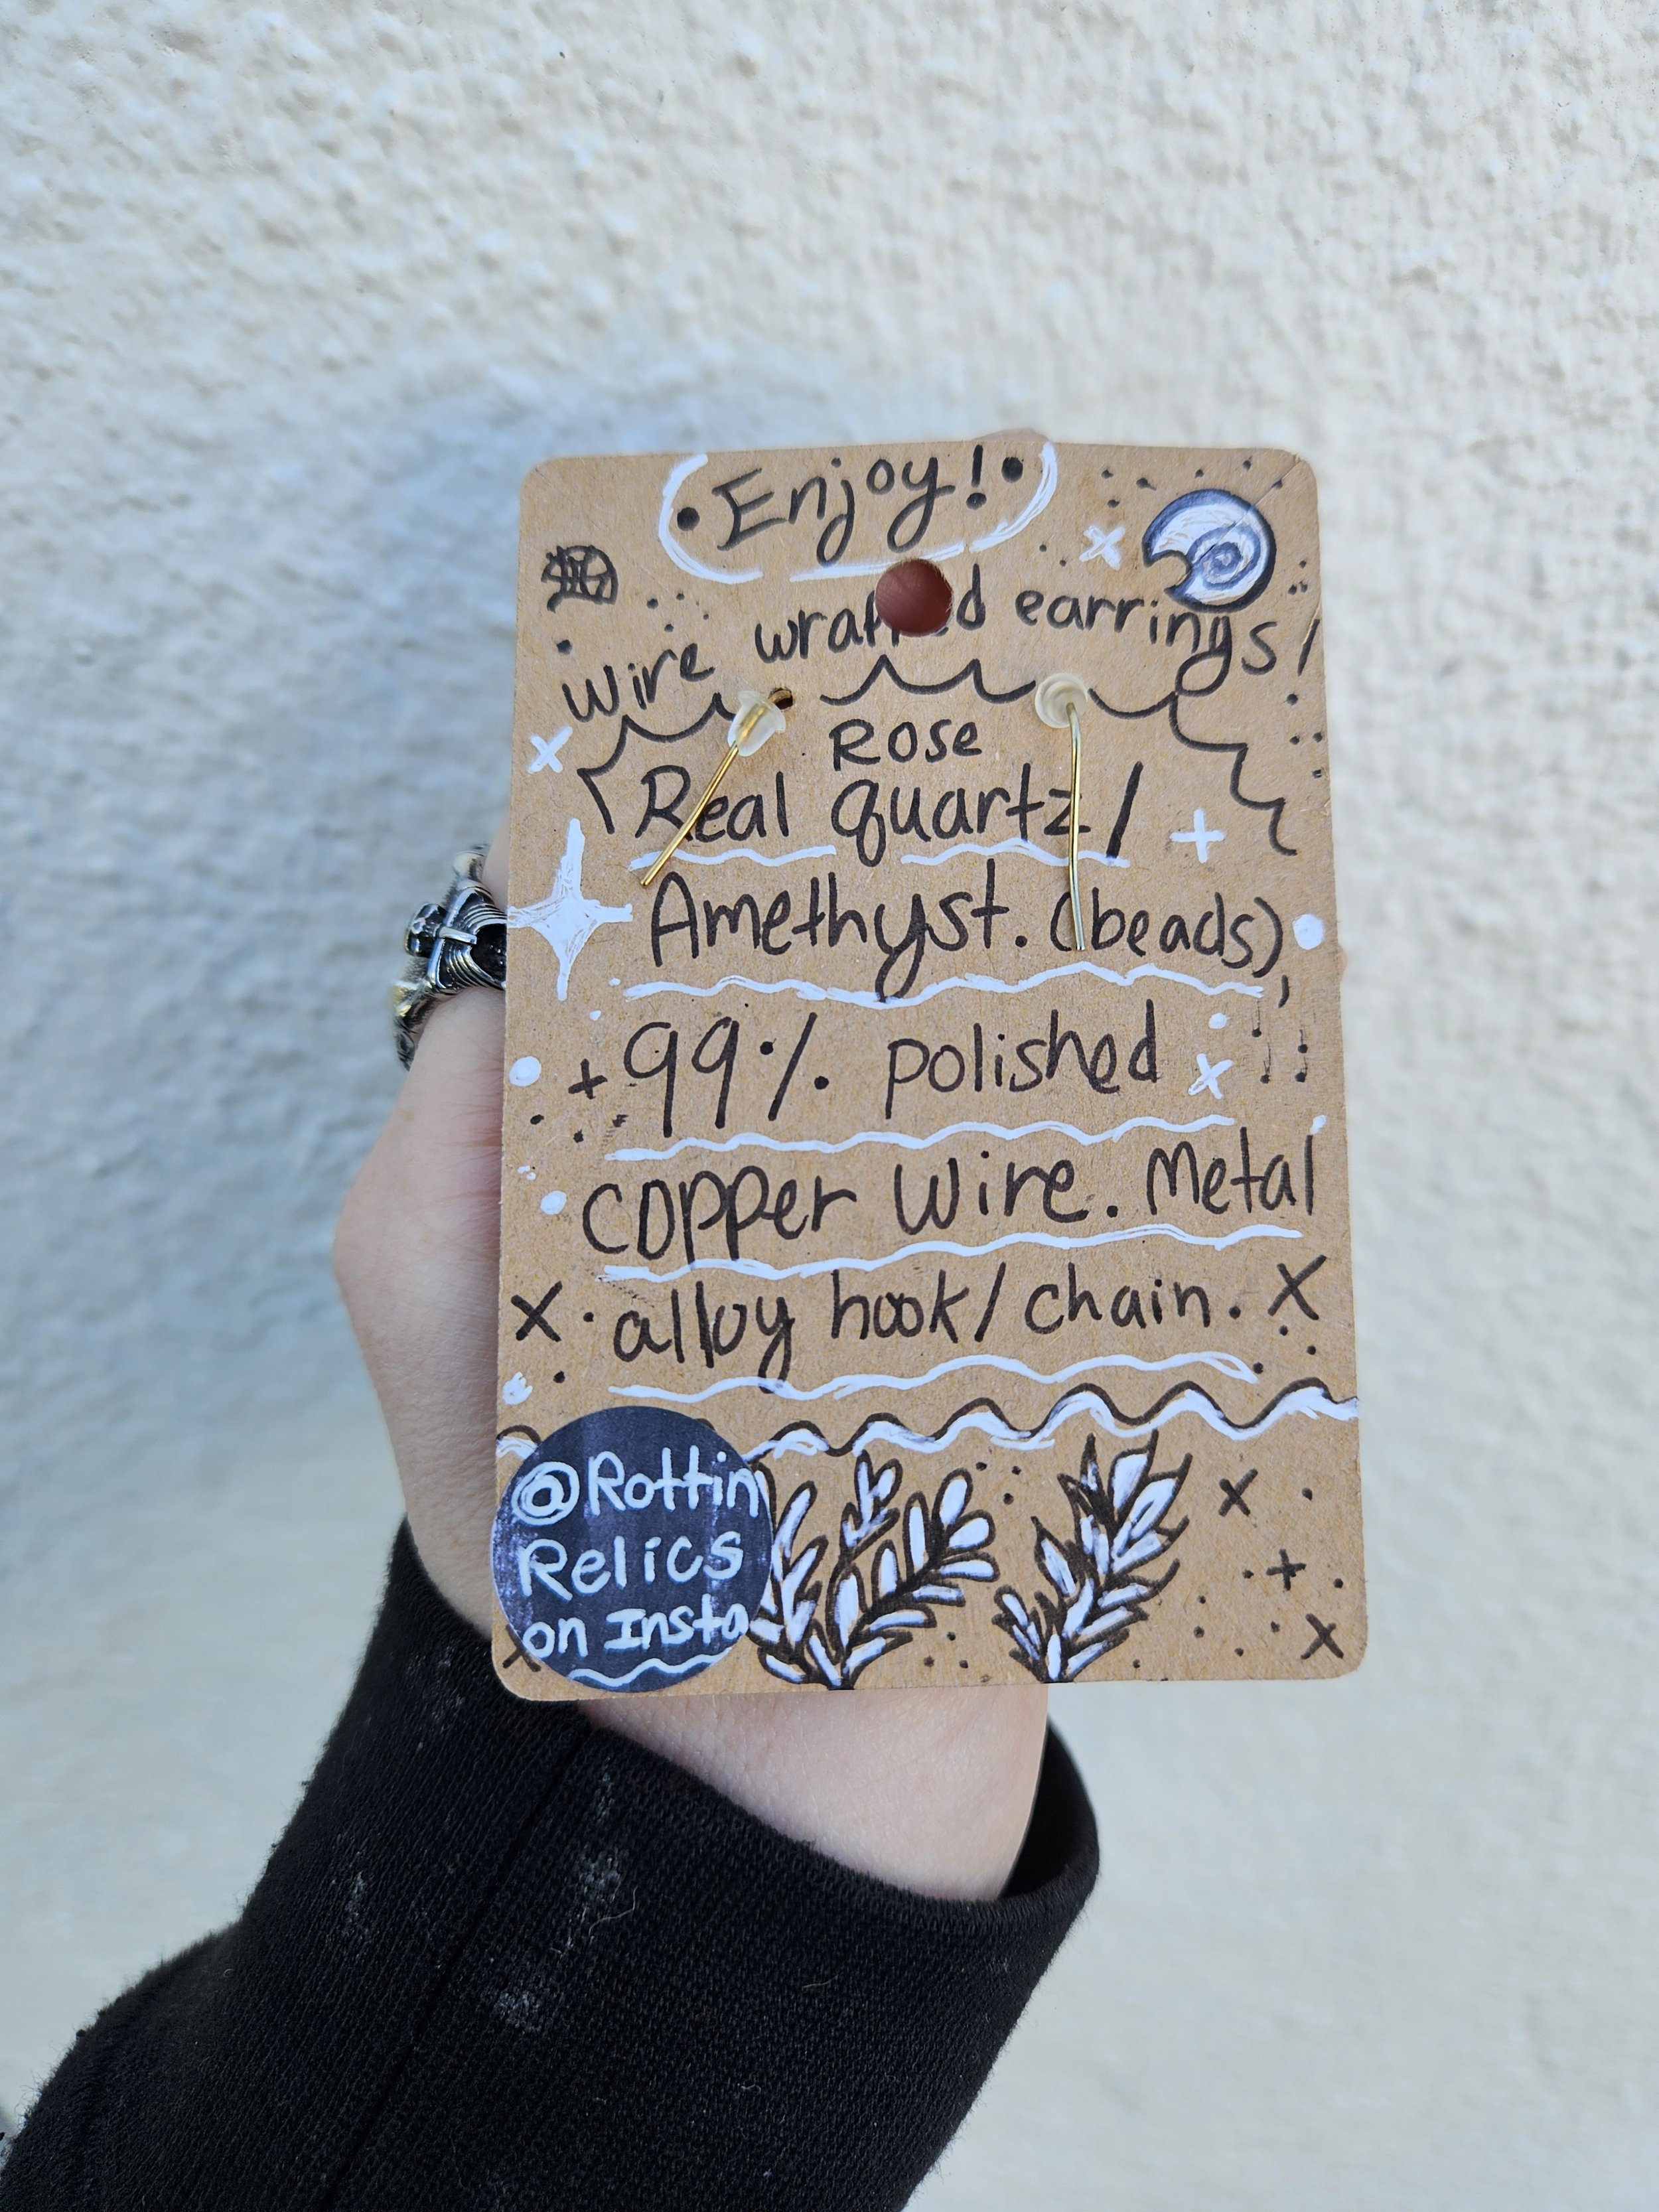 Enjoy!
wire wrapped earrings!
Rose
Real quartz/
Amethyst. (beads),
99%. polished
copper wire. Metal
alloy hook/chain.
@Rottin
Relics
on Insta